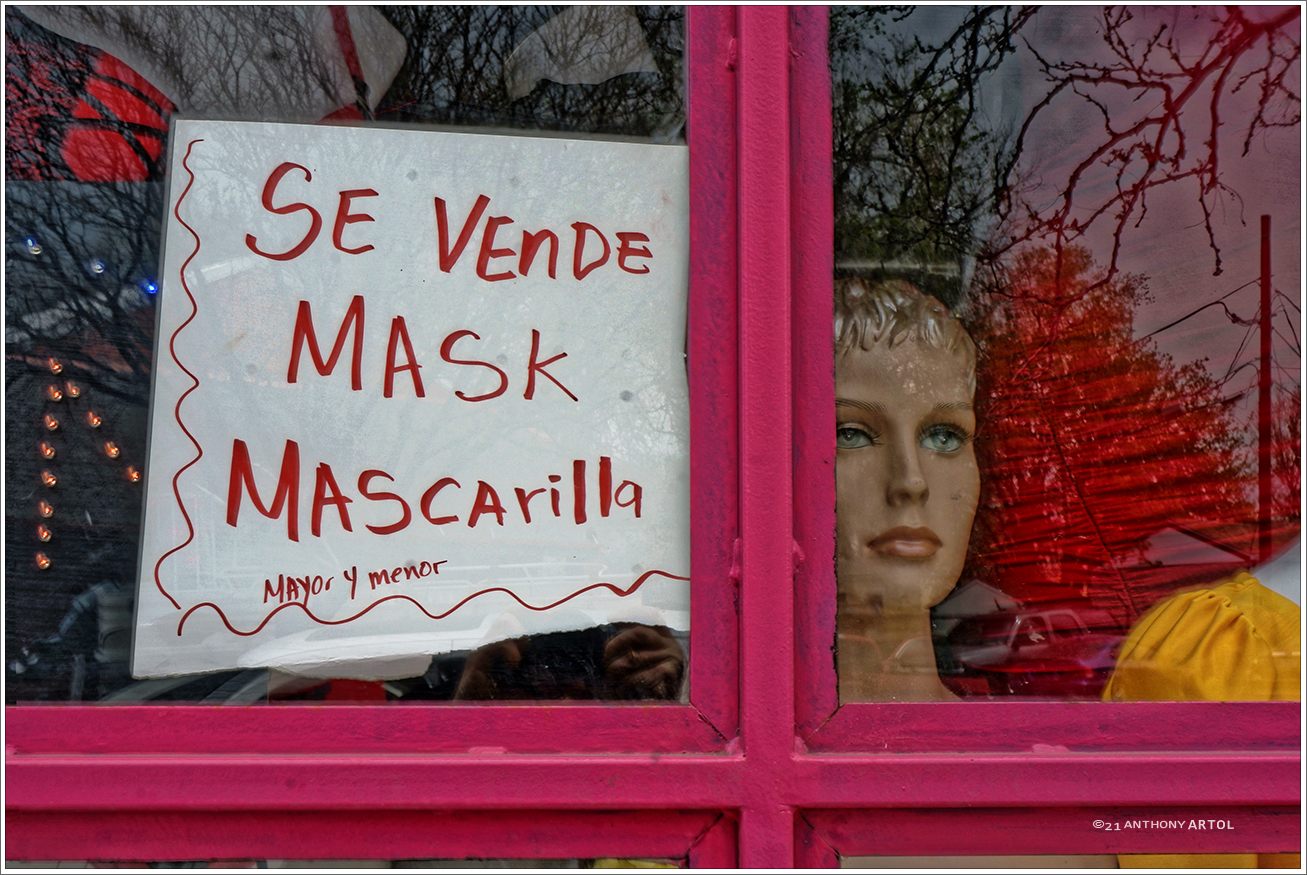 SE VENDE
MASK
MASCArilla
MAYor y menor
©21 ANTHONY ARTOL